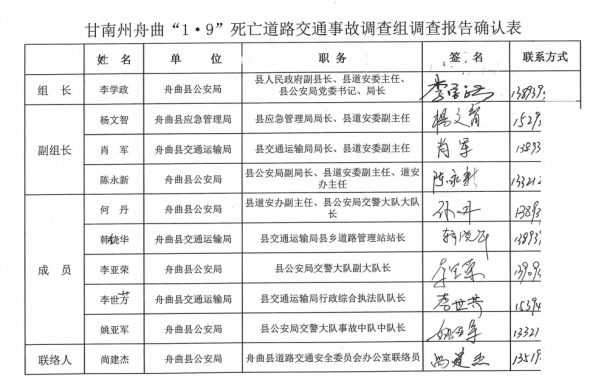 甘南州舟曲“1·9”死亡道路交通事故调查组调查报告确认表
姓 名 单 位 职 务 签 名 联系方式
组 长 李学政 舟曲县公安局 县人民政府副县长、县道安委主任、
县公安局党委书记、局长 李学政 138939
副组长 杨文智 舟曲县应急管理局 县应急管理局局长、县道安委副主任 杨文智 1529
肖 军 舟曲县交通运输局 县交通运输局局长、县道安委副主任 肖军 13893
陈永新 舟曲县公安局 县公安局副局长、县道安委副主任、道安
办主任 陈永新 13321
成 员 何 丹 舟曲县公安局 道安办副主任、县公安局交警大队大队
长 13893
韩晓华 舟曲县交通运输局 县交通运输局县乡道路管理站站长 13893
李亚荣 舟曲县公安局 县公安局交警大队副大队长 13909
李世芳 舟曲县交通运输局 县交通运输局行政综合执法队队长 李世芳 15394
姚亚军 舟曲县公安局 县公安局交警大队事故中队中队长 姚亚军 13321
联络人 尚建杰 舟曲县公安局 舟曲县道路交通安全委员会办公室联络员 尚建杰 13519